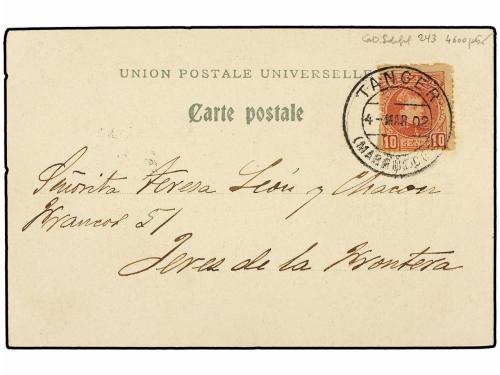 243 4600 pts
UNION POSTALE UNIVERSELLE
Carte postale
TANGER
4-MAR.02
(MARRUECOS)
10 10
Señorita Teresa León y Chacon
Francos 51
Jeres de la Frontera